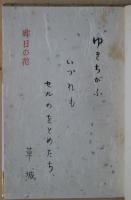 ゆきちがふ
いづれも
セルのをとめたち
草城
昨日の花